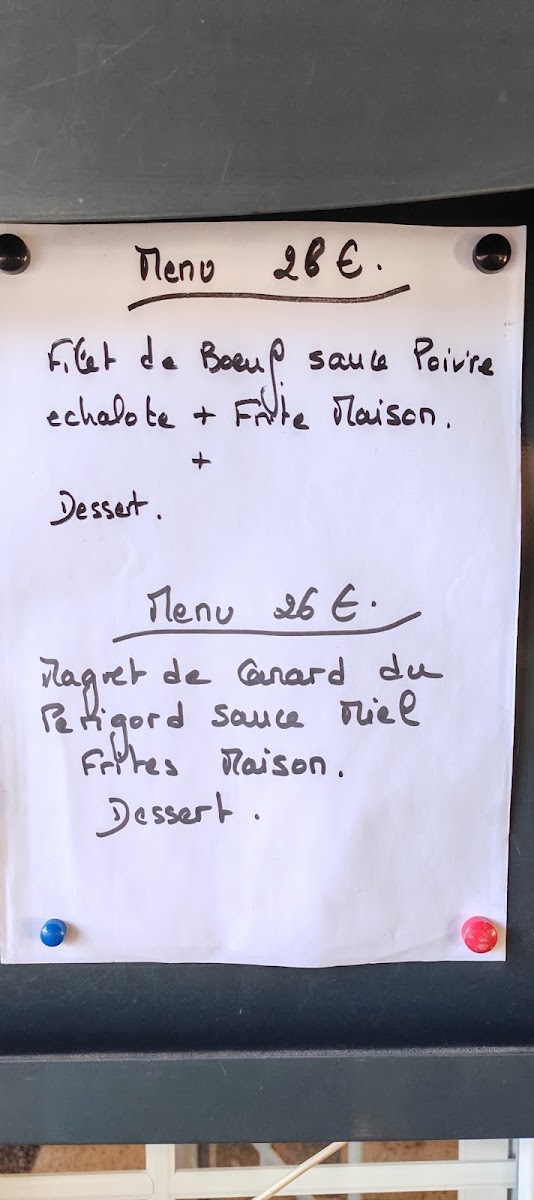 Menu 28 €.
Filet de Boeuf sauce Poivre
echalote + Frite Maison.
+
Dessert.
Menu 26 €.
Magret de Canard du
Perigord sauce Miel
Frites Maison.
Dessert.